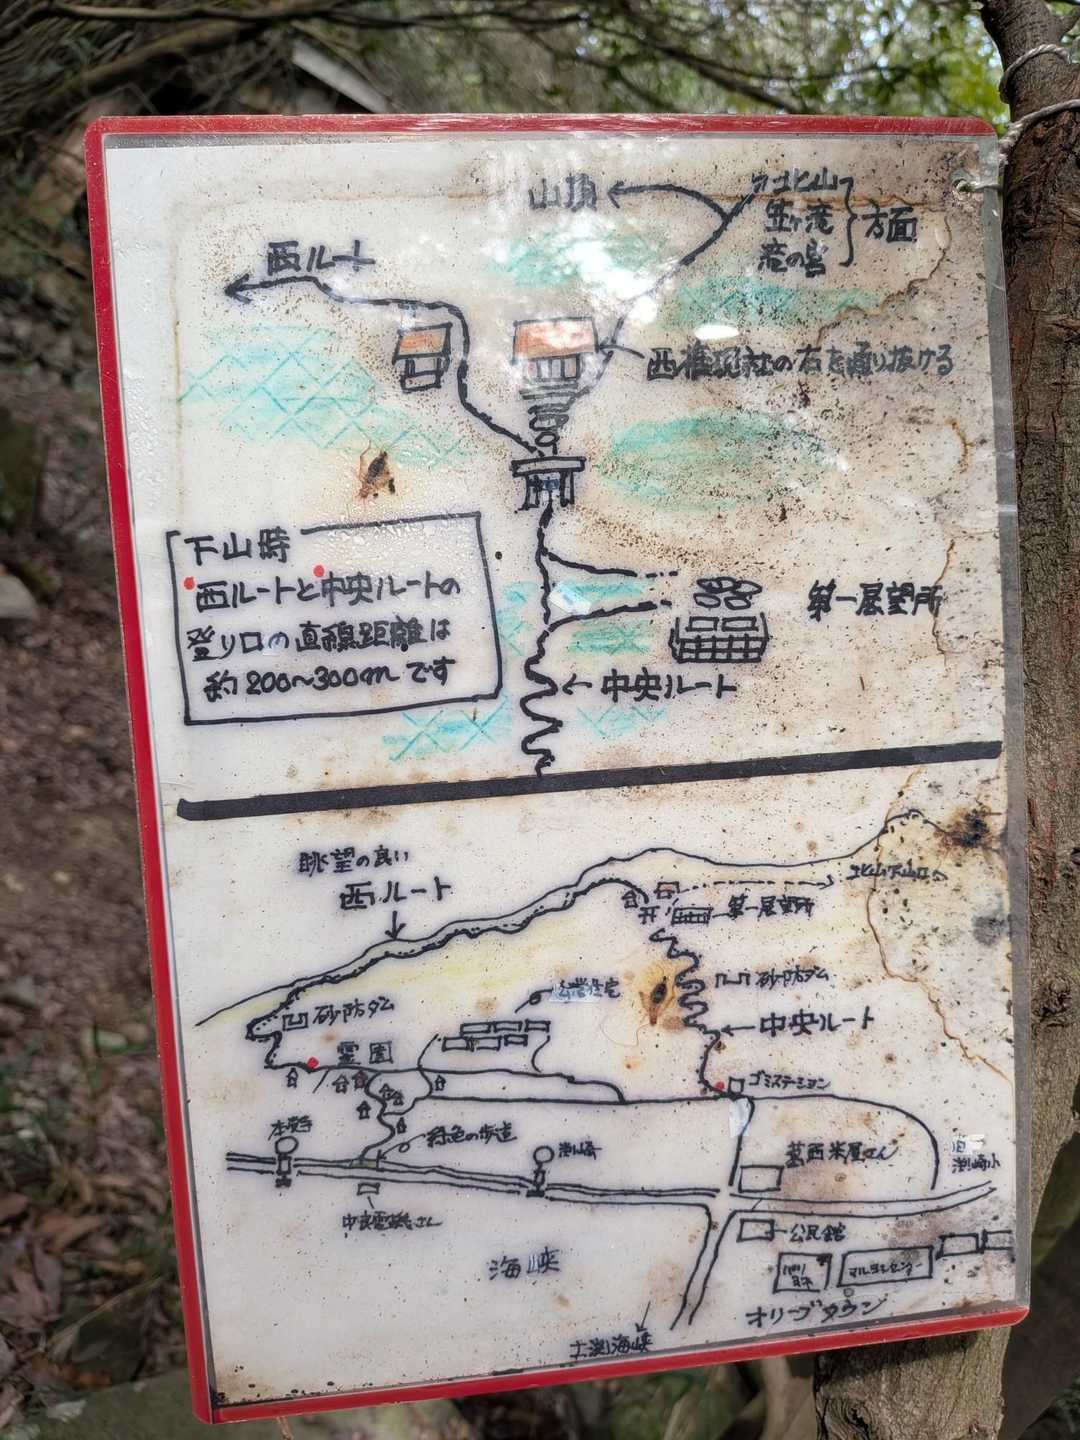 山頂
北山
笠ヶ滝
滝の宮
方面
西ルート
西権現社の右を通り抜ける
下山時
西ルートと中央ルートの
登り口の直線距離は
約200〜300mです
第一展望所
←中央ルート
眺望の良い
西ルート
北山下山口へ
第一展望所
砂防ダム
公営住宅
砂防ダム
←中央ルート
霊園
ゴミステーション
本覚寺
緑色の歩道
渕崎
葛西米屋さん
旧
渕崎小
中良電機さん
公民館
海峡
マルヨシセンター
オリーブタウン
土渕海峡